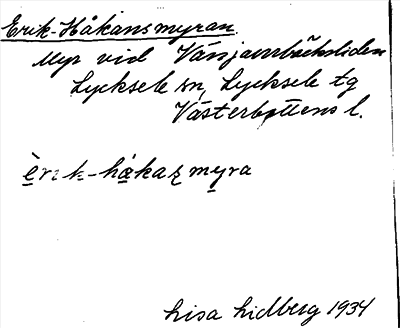 Erik-Håkansmyran.
Myr vid Vänjaurbäcksliden
Lycksele sn, Lycksele tg
Västerbottens l.
èrik-håkaʒ myra
Lisa Lidberg 1934